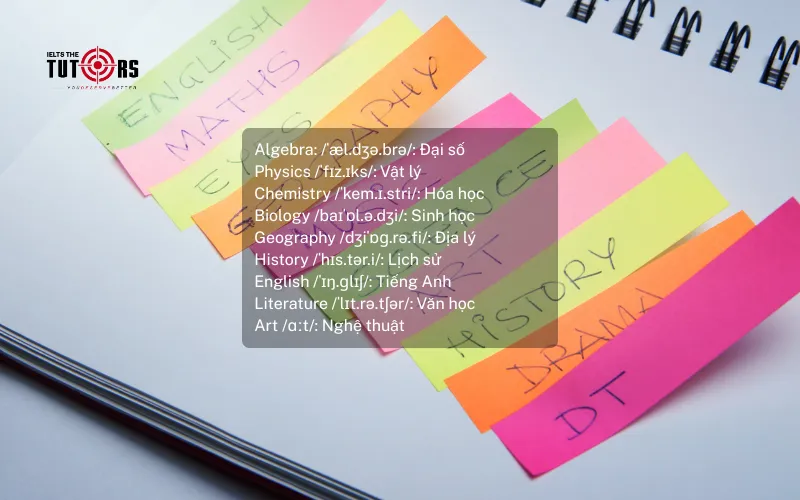 IELTS THE
TUTORS
YOU DESERVE BETTER
ENGLISH
MATHS
EYES
GEOGRAPHY
MUSIC
SCIENCE
ART
HISTORY
DRAMA
DT
Algebra: /ˈæl.dʒə.brə/: Đại số
Physics /ˈfɪz.ɪks/: Vật lý
Chemistry /ˈkem.ɪ.stri/: Hóa học
Biology /baɪˈɒl.ə.dʒi/: Sinh học
Geography /dʒiˈɒɡ.rə.fi/: Địa lý
History /ˈhɪs.tər.i/: Lịch sử
English /ˈɪŋ.ɡlɪʃ/: Tiếng Anh
Literature /ˈlɪt.rə.tʃər/: Văn học
Art /ɑːt/: Nghệ thuật